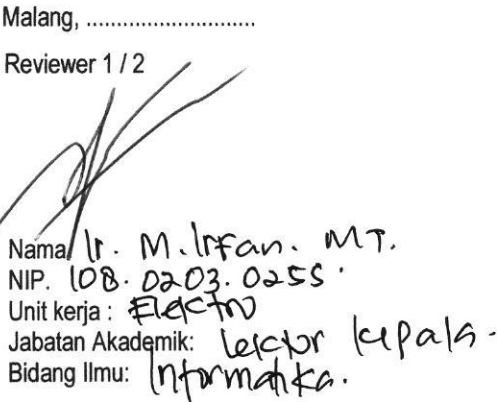 Malang, ............................
Reviewer 1 / 2
Nama Ir. M. Irfan. MT.
NIP. 108. 0203. 0255.
Unit kerja : Elektro
Jabatan Akademik: Lektor kepala.
Bidang Ilmu: Informatika.